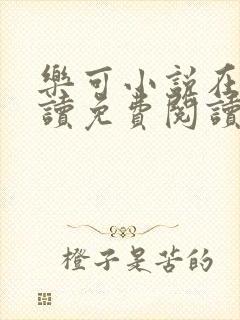 樂可小說在
讀免費閱讀
橙子是苦的